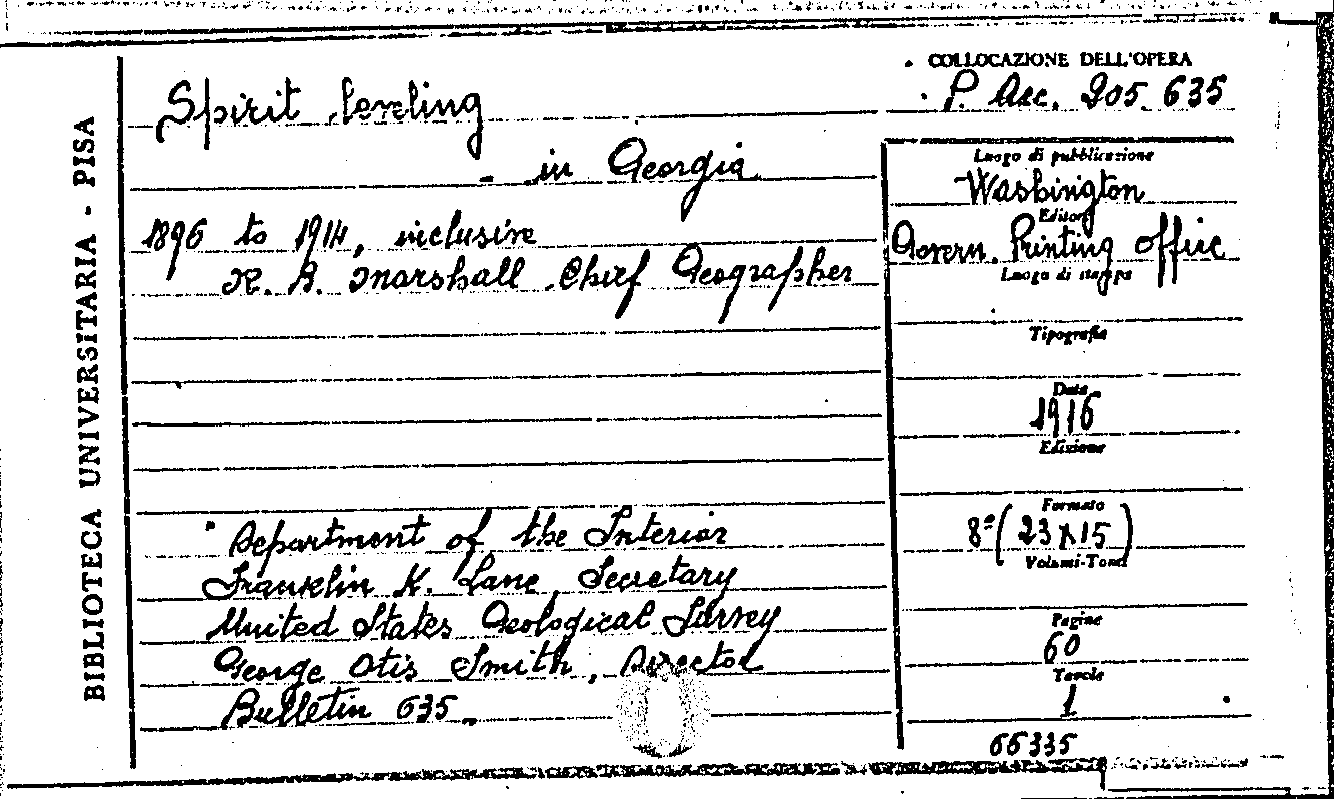 BIBLIOTECA UNIVERSITARIA - PISA
Spirit leveling
- in Georgia
1896 to 1914, inclusive
R. B. Marshall Chief Geographer
Department of the Interior
Franklin K. Lane, Secretary
United States Geological Survey
George Otis Smith, Director
Bulletin 635
COLLOCAZIONE DELL'OPERA
P. Acc. 205. 635
Luogo di pubblicazione
Washington
Editore
Govern. Printing Office
Luogo di stampa
Tipografia
Data
1916
Edizione
Formato
8° (23x15)
Volumi-Tomi
Pagine
60
Tavole
1
66335